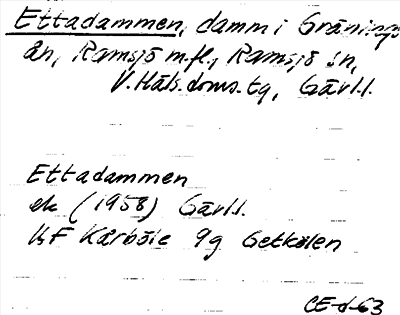 Ettadammen, damm i Gränings-
ån, Ramsjö m.fl., Ramsjö sn,
V. Häls. doms. tg, Gävl.l.
Ettadammen
ek (1958) Gävl.l.
KF Kårböle 9g Getkölen
CE-d-63